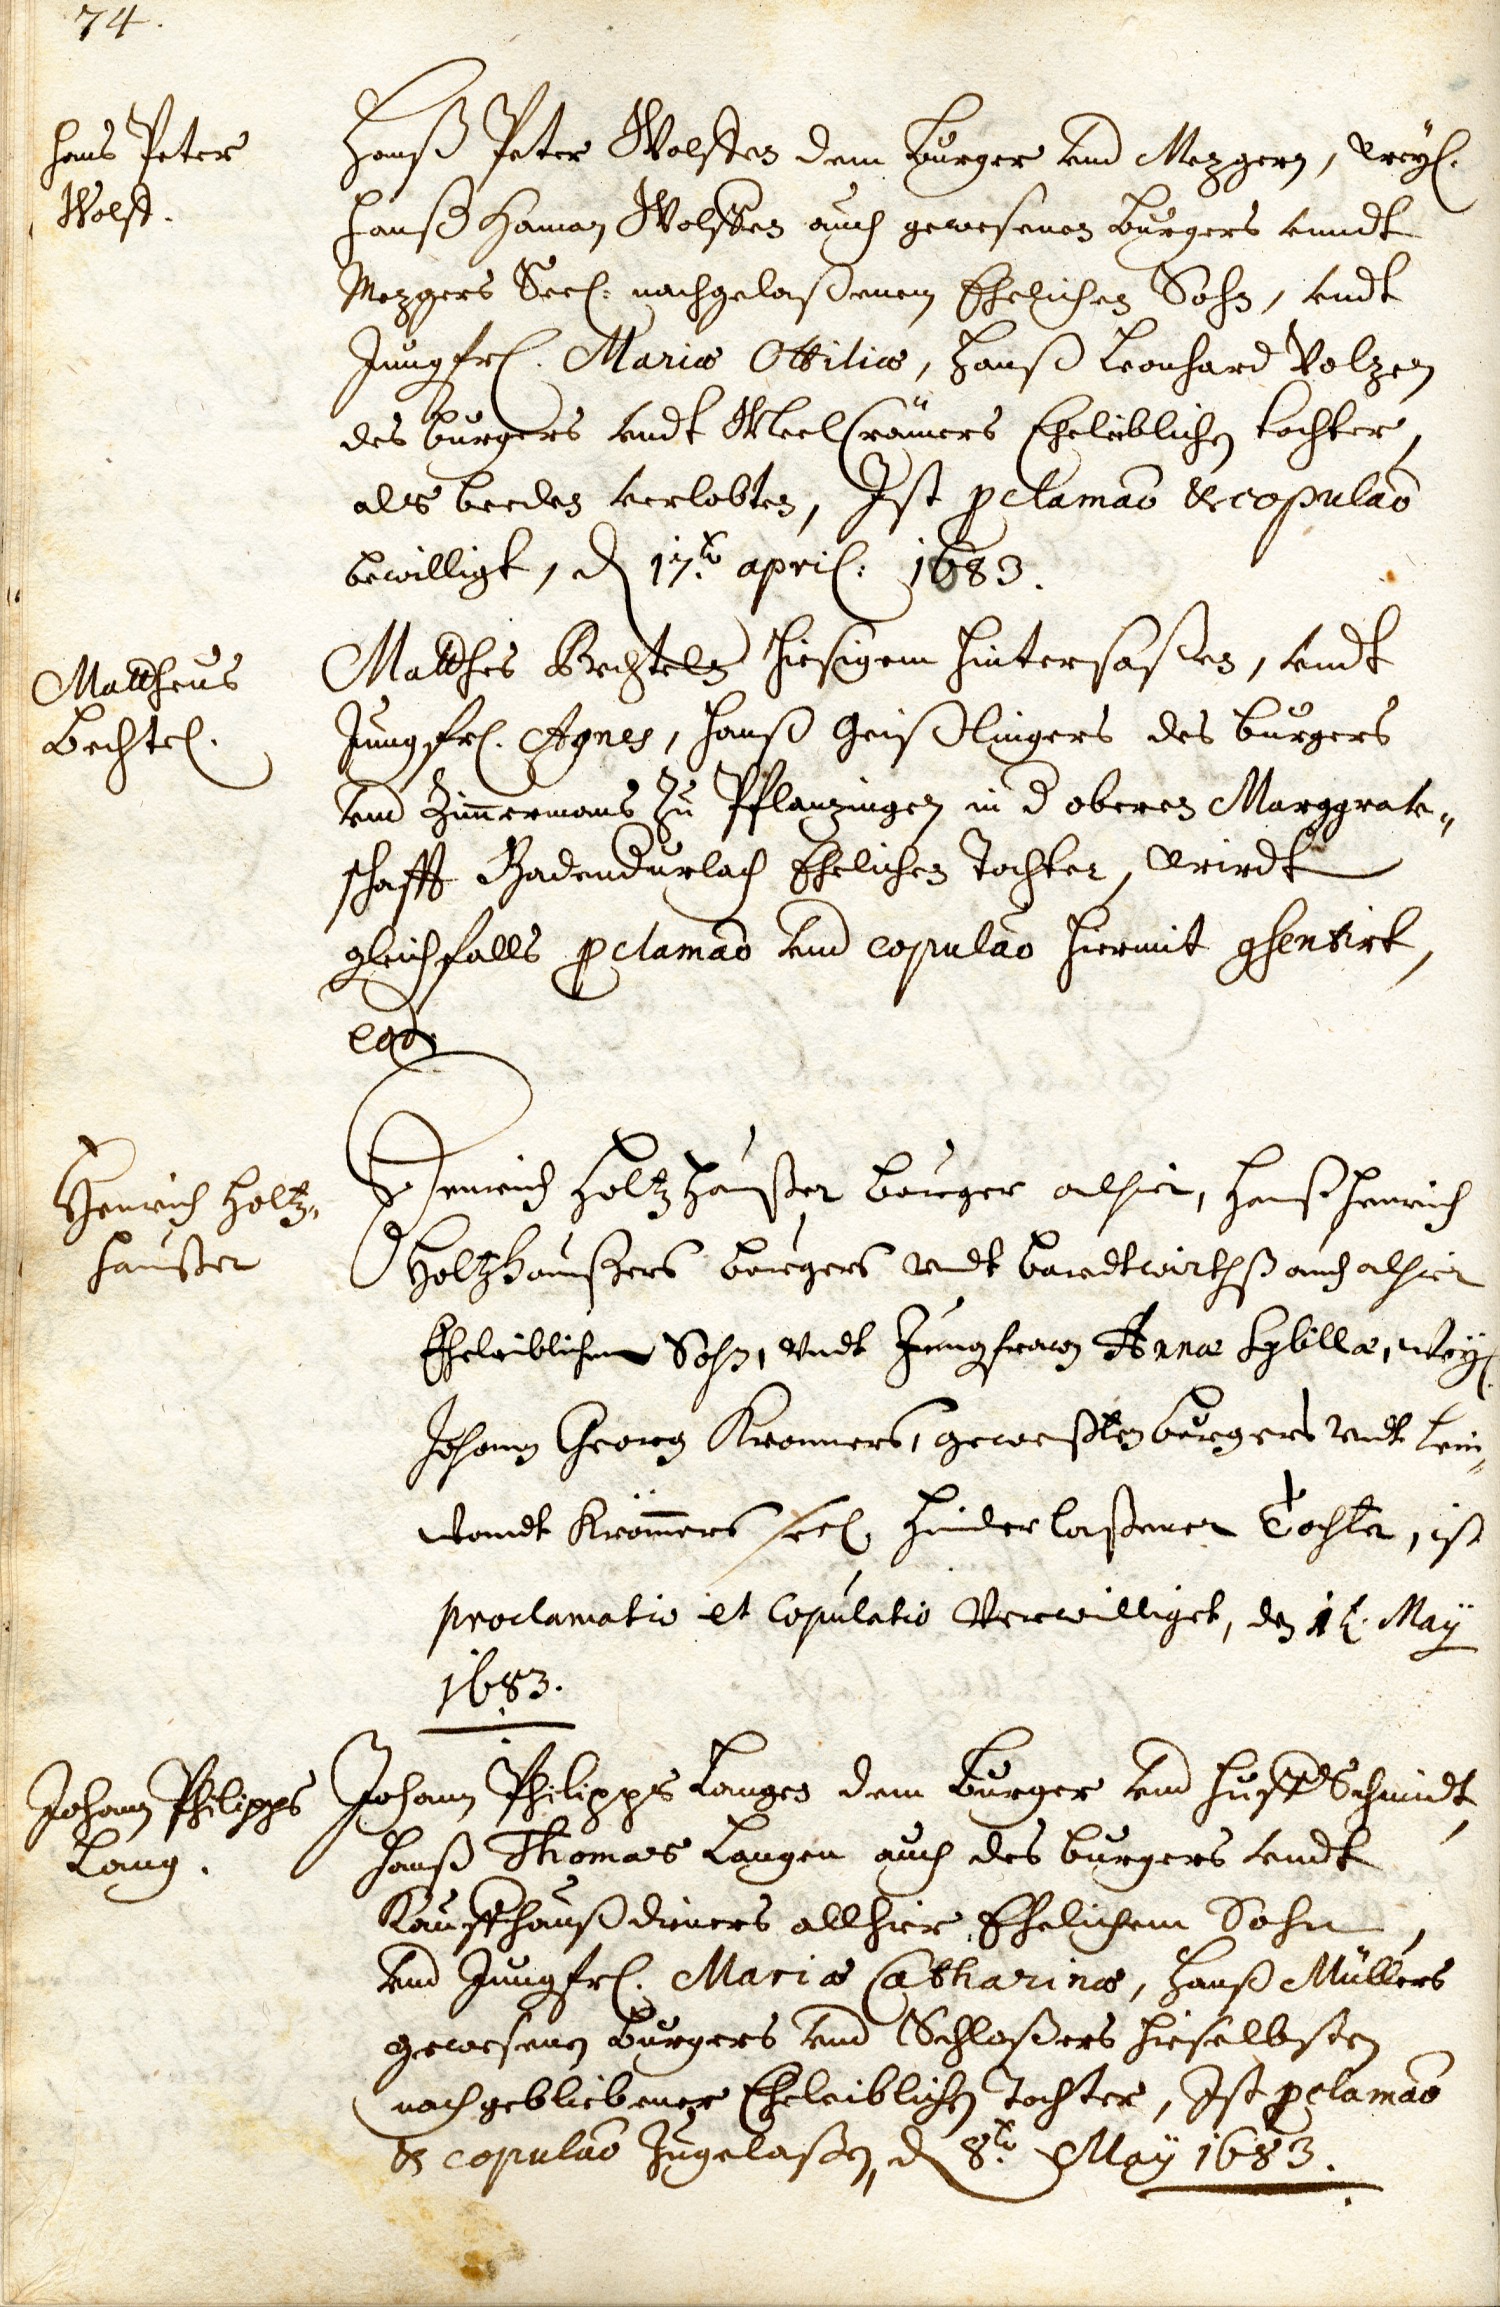 74.
Hans Peter
Wolff.
Hanß Peter Wolffen dem Burger und Mezgern, weyl.
Hanß Haman Wolffen auch gewesenen Burgers undt
Mezgers Seel: nachgelaßenem Ehelichen Sohn, undt
Jungfrl. Mariæ Ottiliæ, Hanß Leonhard Volzen
des burgers undt MeelCrämers Eheleiblichen tochter,
als beeden verlobten, Ist pclamaõ & copulaõ
bewilligt, d 17.ten april: 1683.
Mattheus
Bechtel.
Matthes Bechteln hiesigem hintersaßen, undt
Jungfrl. Agnes, Hanß Geißlingers des burgers
und Zim̄ermans zu Pflanzingen in d oberen Marggrave„
schafft Badendurlach Ehelichen Tochter, wirdt
gleichfalls pclamaõ und copulaõ hiermit ɔsentirt,
eod.
Henrich Holtz„
haußer
Henrich Holtzhaußer burger alhier, Hanß Henrich
Holtzhaußers burgers undt wirthß auch alhier
Eheleiblichem Sohn, undt Jungfrawen Annæ Sybillæ, wey.
Johann Georg Kronners, geweßten burgers undt Lein„
wandt Kröm̄ers seel. hinderlaßener Tochter, ist
proclamatio et Copulatio Verwilliget, den May
1683.
Johann Philipps
Lang.
Johann Philipps Langen dem Burger und Huff Schmidt,
Hanß Thomas Langen auch des burgers undt
Kauffhaußdieners allhier Ehelichem Sohn,
und Jungfrl. Mariæ Catharinæ, Hanß Müllers
gewesenen Burgers und Schloßers hieselbsten
nachgebliebener Eheleiblichen Tochter, Ist pclamaõ
& copulaõ zugelaßen, d 8.ten May 1683.